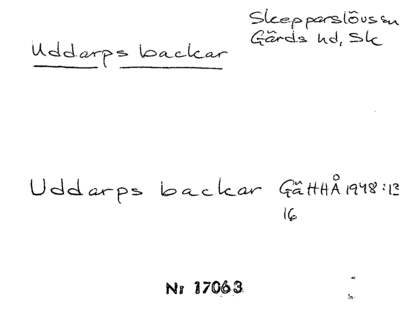 Uddarps backar
Skepparslövs sn
Gärds hd, Sk
Uddarps backar GäHHÅ 1948:13
16
Nr 17063